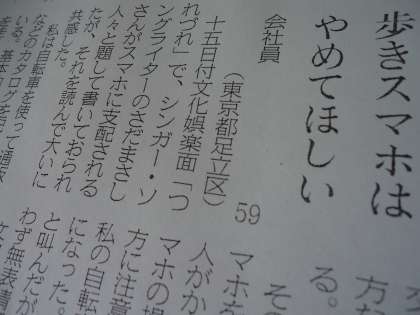 歩きスマホは
やめてほしい
会社員
（東京都足立区）
59
十五日付文化娯楽面「つ
れづれ」で、シンガー・ソ
ングライターのさだまさし
さんがスマホに支配される
人々と題して書いておられ
たが、それを読んで大いに
共感した。
私は自転車を使って通販
などのカタログを
いる。基本
る。
そ
マホを
人がか
マホの操
方に注意
私の自転
になった。
と叫んだが
わず無表情